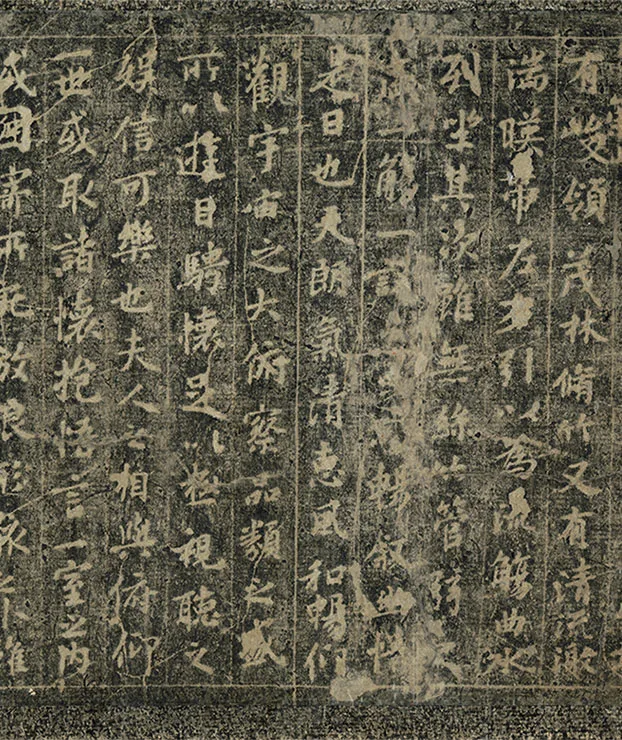 有峻領茂林脩竹又有清流激
湍暎帶左右引以為流觴曲水
列坐其次雖無絲竹管弦之
盛一觴一詠暢敘幽情
是日也天朗氣清惠風和暢仰
觀宇宙之大俯察品類之盛
所以遊目騁懷足以極視聽之
娛信可樂也夫人之相與俯仰
一世或取諸懷抱悟言一室之內
或因寄所託放浪形骸之外雖